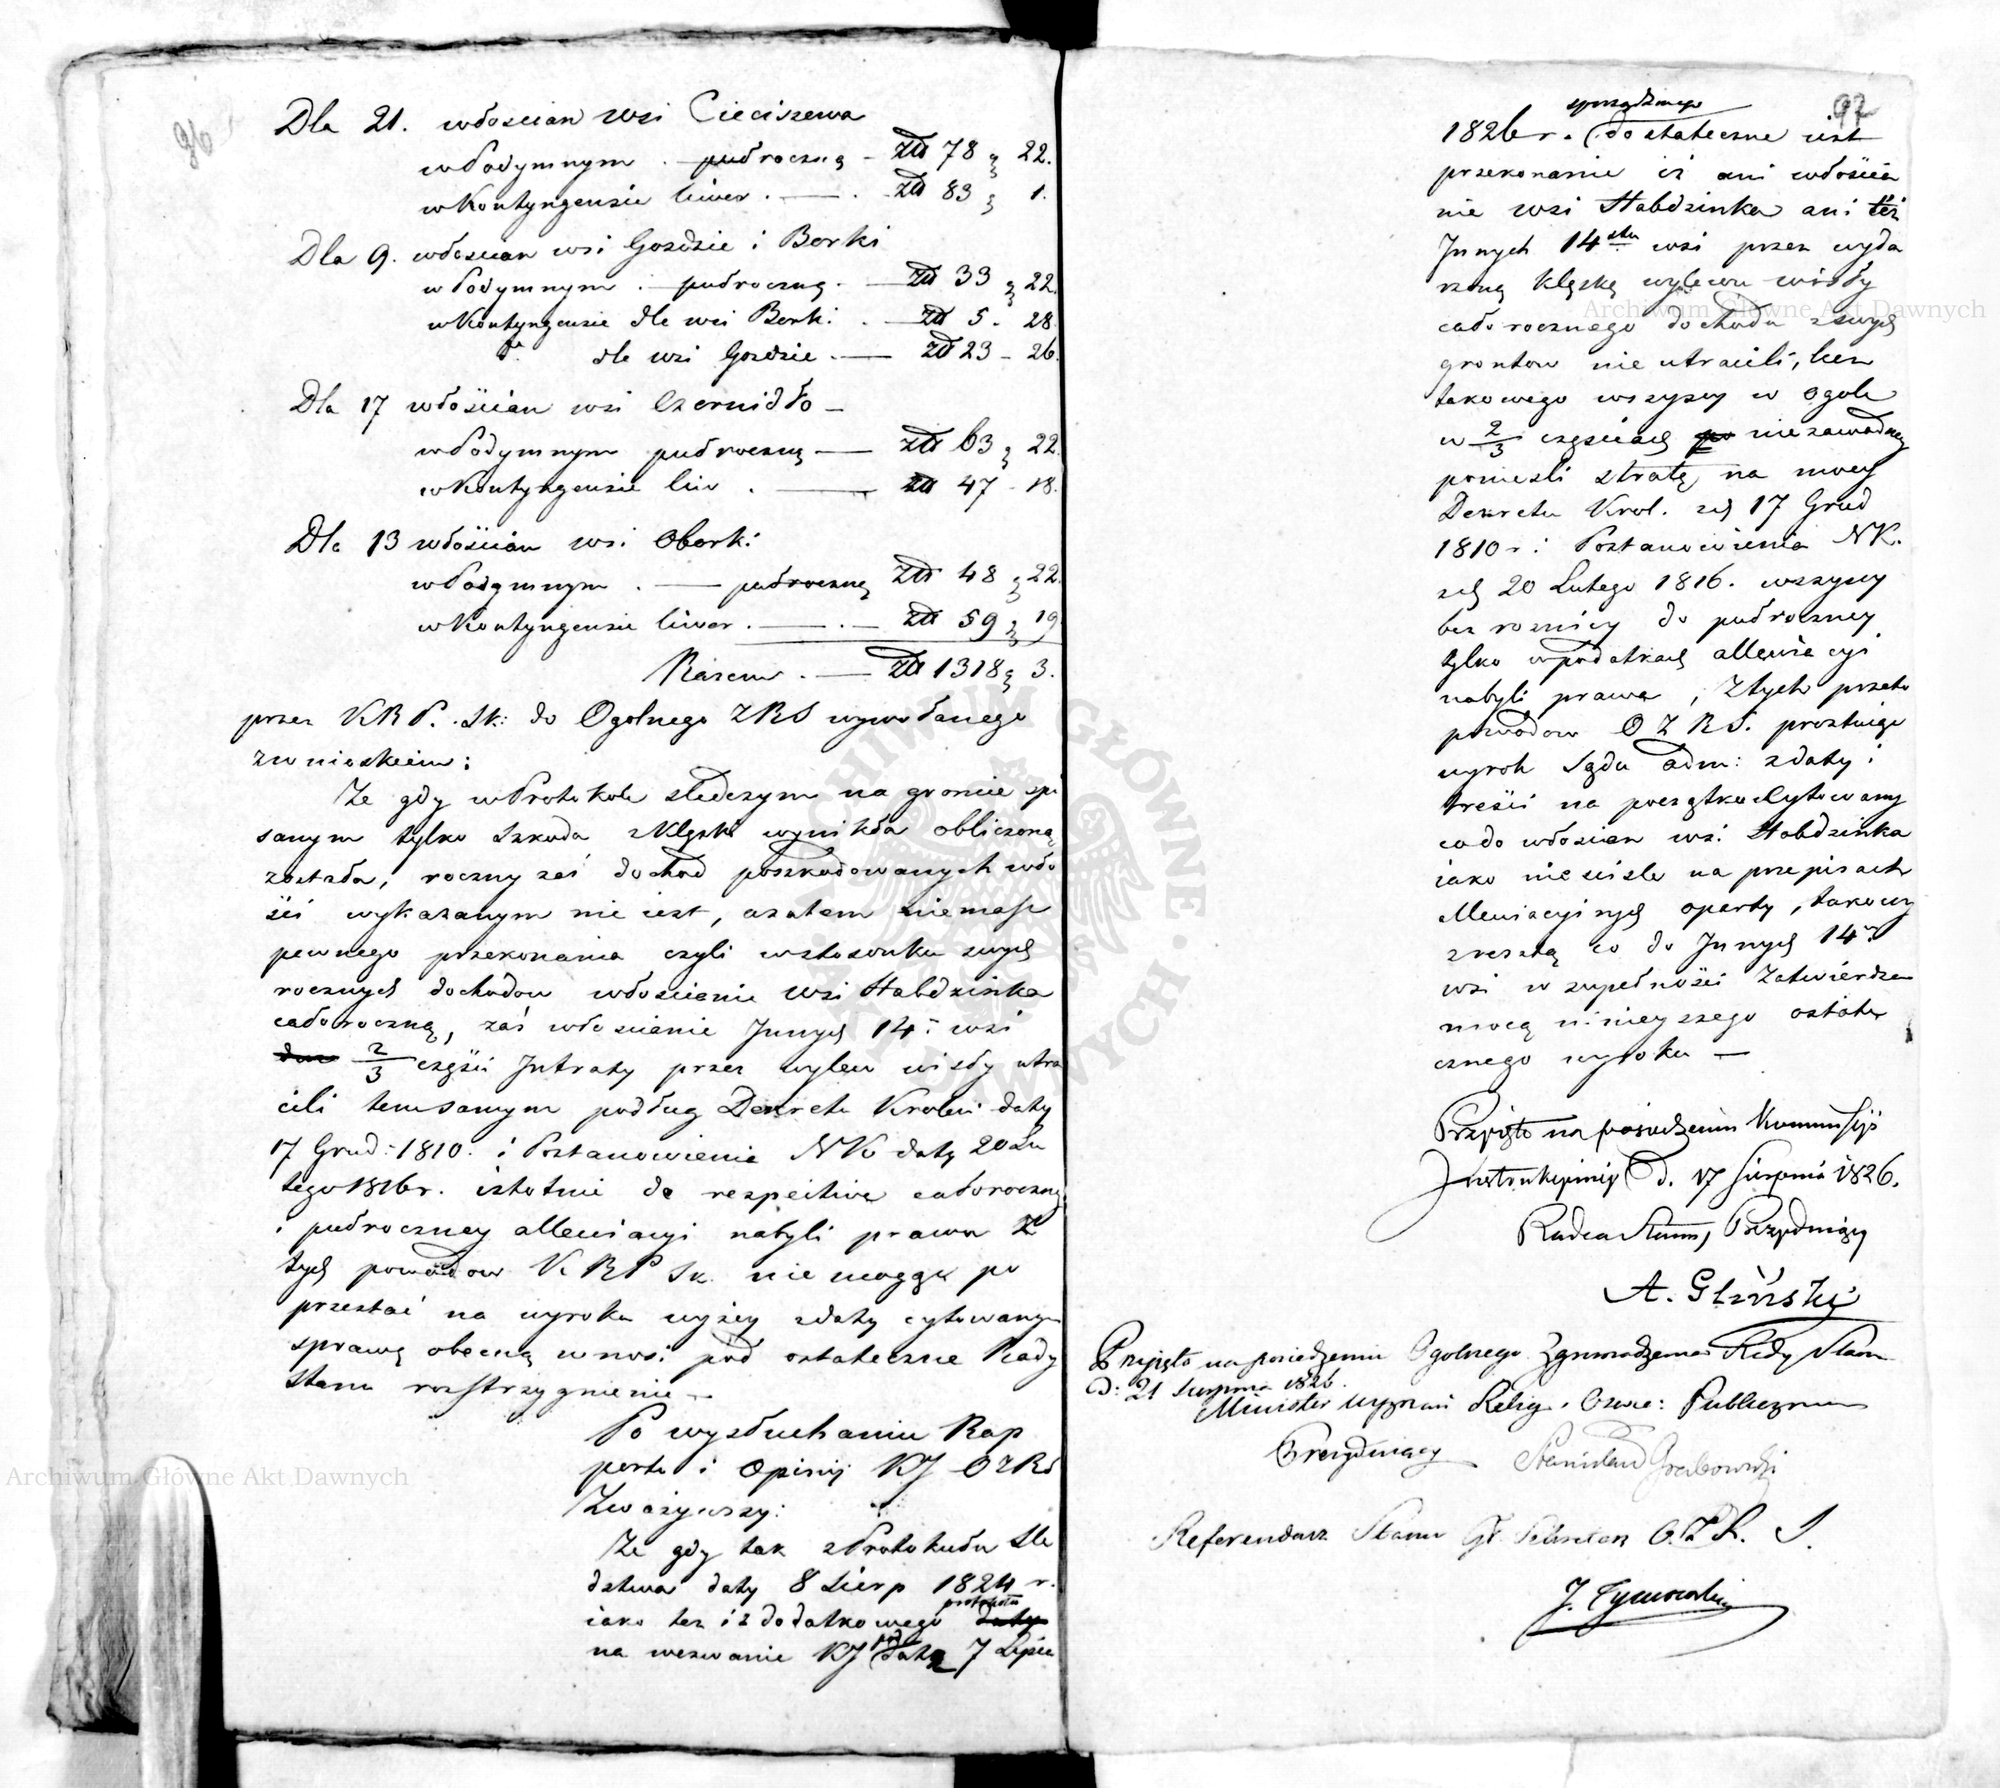 96
Dla 21. włoscian wsi Cieciszewa
w Podymnym . — pułroczną — Złł 78 g 22.
w Kontyngensie liwer . — . — Złł 83 g 1.
Dla 9. włoscian wsi Gozdzie i Borki
w Podymnym . — pułroczną . — Złł 33 g 22.
w Kontyngensie dla wsi Borki . — Złł 5 - 28.
dla wsi Gozdzie . — Złł 23 - 26.
Dla 17 włościan wsi Czernidło —
w Podymnym pułroczną — Złł 63 g 22.
w Kontyngensie liw . — Złł 47 - 18.
Dla 13 włościan wsi Oborki
w Podymnym . — pułroczną Złł 48 g 22.
w Kontyngensie liwer . — . — Złł 59 g 19.
Razem . — Złł 1318 g 3.
przez KRP. Sk: do Ogolnego ZRS wywołanego
z wnioskiem:
Ze gdy w Protokole sledczym na groncie spi
sanym tylko szkoda z klęski wynikła obliczoną
została, roczny zaś dochod poszkodowanych wło
ści wykazanym nie iest, azatem niemasz
pewnego przekonania czyli w stosonku swych
rocznych dochodow włoscianie wsi Habdzinka
całoroczną, zaś włoscianie Innych 14 wsi
2/3 części Intraty przez wylew wisły utra
cili temsamym podług Dekretu Krolew: daty
17 Grud: 1810. i Postanowienia NKo daty 20 Lu
tego 1816 r. istotnie do respective całoroczney
i pułroczney allewiacyi nabyli prawa Z
tych powodow KRP Sk. nie mogąc po
przestać na wyroku wyżey z daty cytowanym
sprawę obecną wnosi pod ostateczne Rady
Stanu rozstrzygnienie —
Po wysłuchaniu Rap
portu i Opinij KJ OZRS
Zważywszy:
Ze gdy tak z Protokułu sle
dztwa daty 8 Sierp 1824 r.
iako tez i z dodatkowego protokołu
na wezwanie KJ pod datą 7 Lipca
97
1826 r. sporządzonego dostateczne iest
przekonanie iż ani włościa
nie wsi Habdzinka ani też
Innych 14stu wsi przez wyda
rzoną klęskę wylewu wisły
całorocznego dochodu z swych
grontow nie utracili, lecz
takowego wszyscy w ogole
w 2/3 częściach niezawodnej
ponieśli stratę, na mocy
Dekretu Krol. z d 17 Grud
1810 r. i Postanowienia NK.
z d 20 Lutego 1816. wszyscy
bez roznicy do pułroczney
tylko w podatkach allewiacyi
nabyli prawa, Z tych przeto
powodow O Z R S. prostuiąc
wyrok Sądu Adm: z daty i
treści na początku cytowany
co do włoscian wsi Habdzinka
iako nie scisle na przepisach
allewiacyinych oparty, takowy
zresztą co do Innych 14
wsi w zupełności zatwierdza
mocą ninieyszego ostate
cznego wyroku —
Przyięto na posiedzeniu Kommissyi
Instrukcyiney d. 17 Sierpnia 1826.
Radca Stanu, Prezyduiący
A. Gliński
Przyięto na posiedzeniu Ogolnego Zgromadzenia Rady Stanu
D: 21 Sierpnia 1826.
Minister Wyznań Relig. i Oświe: Publicznego
Prezyduiący Stanisław Grabowski
Referendarz Stanu Gł. Sekretarz O.Z.R. S.
J. Tymowski
Archiwum Główne Akt Dawnych
Archiwum Główne Akt Dawnych
ARCHIWUM GŁÓWNE AKT DAWNYCH